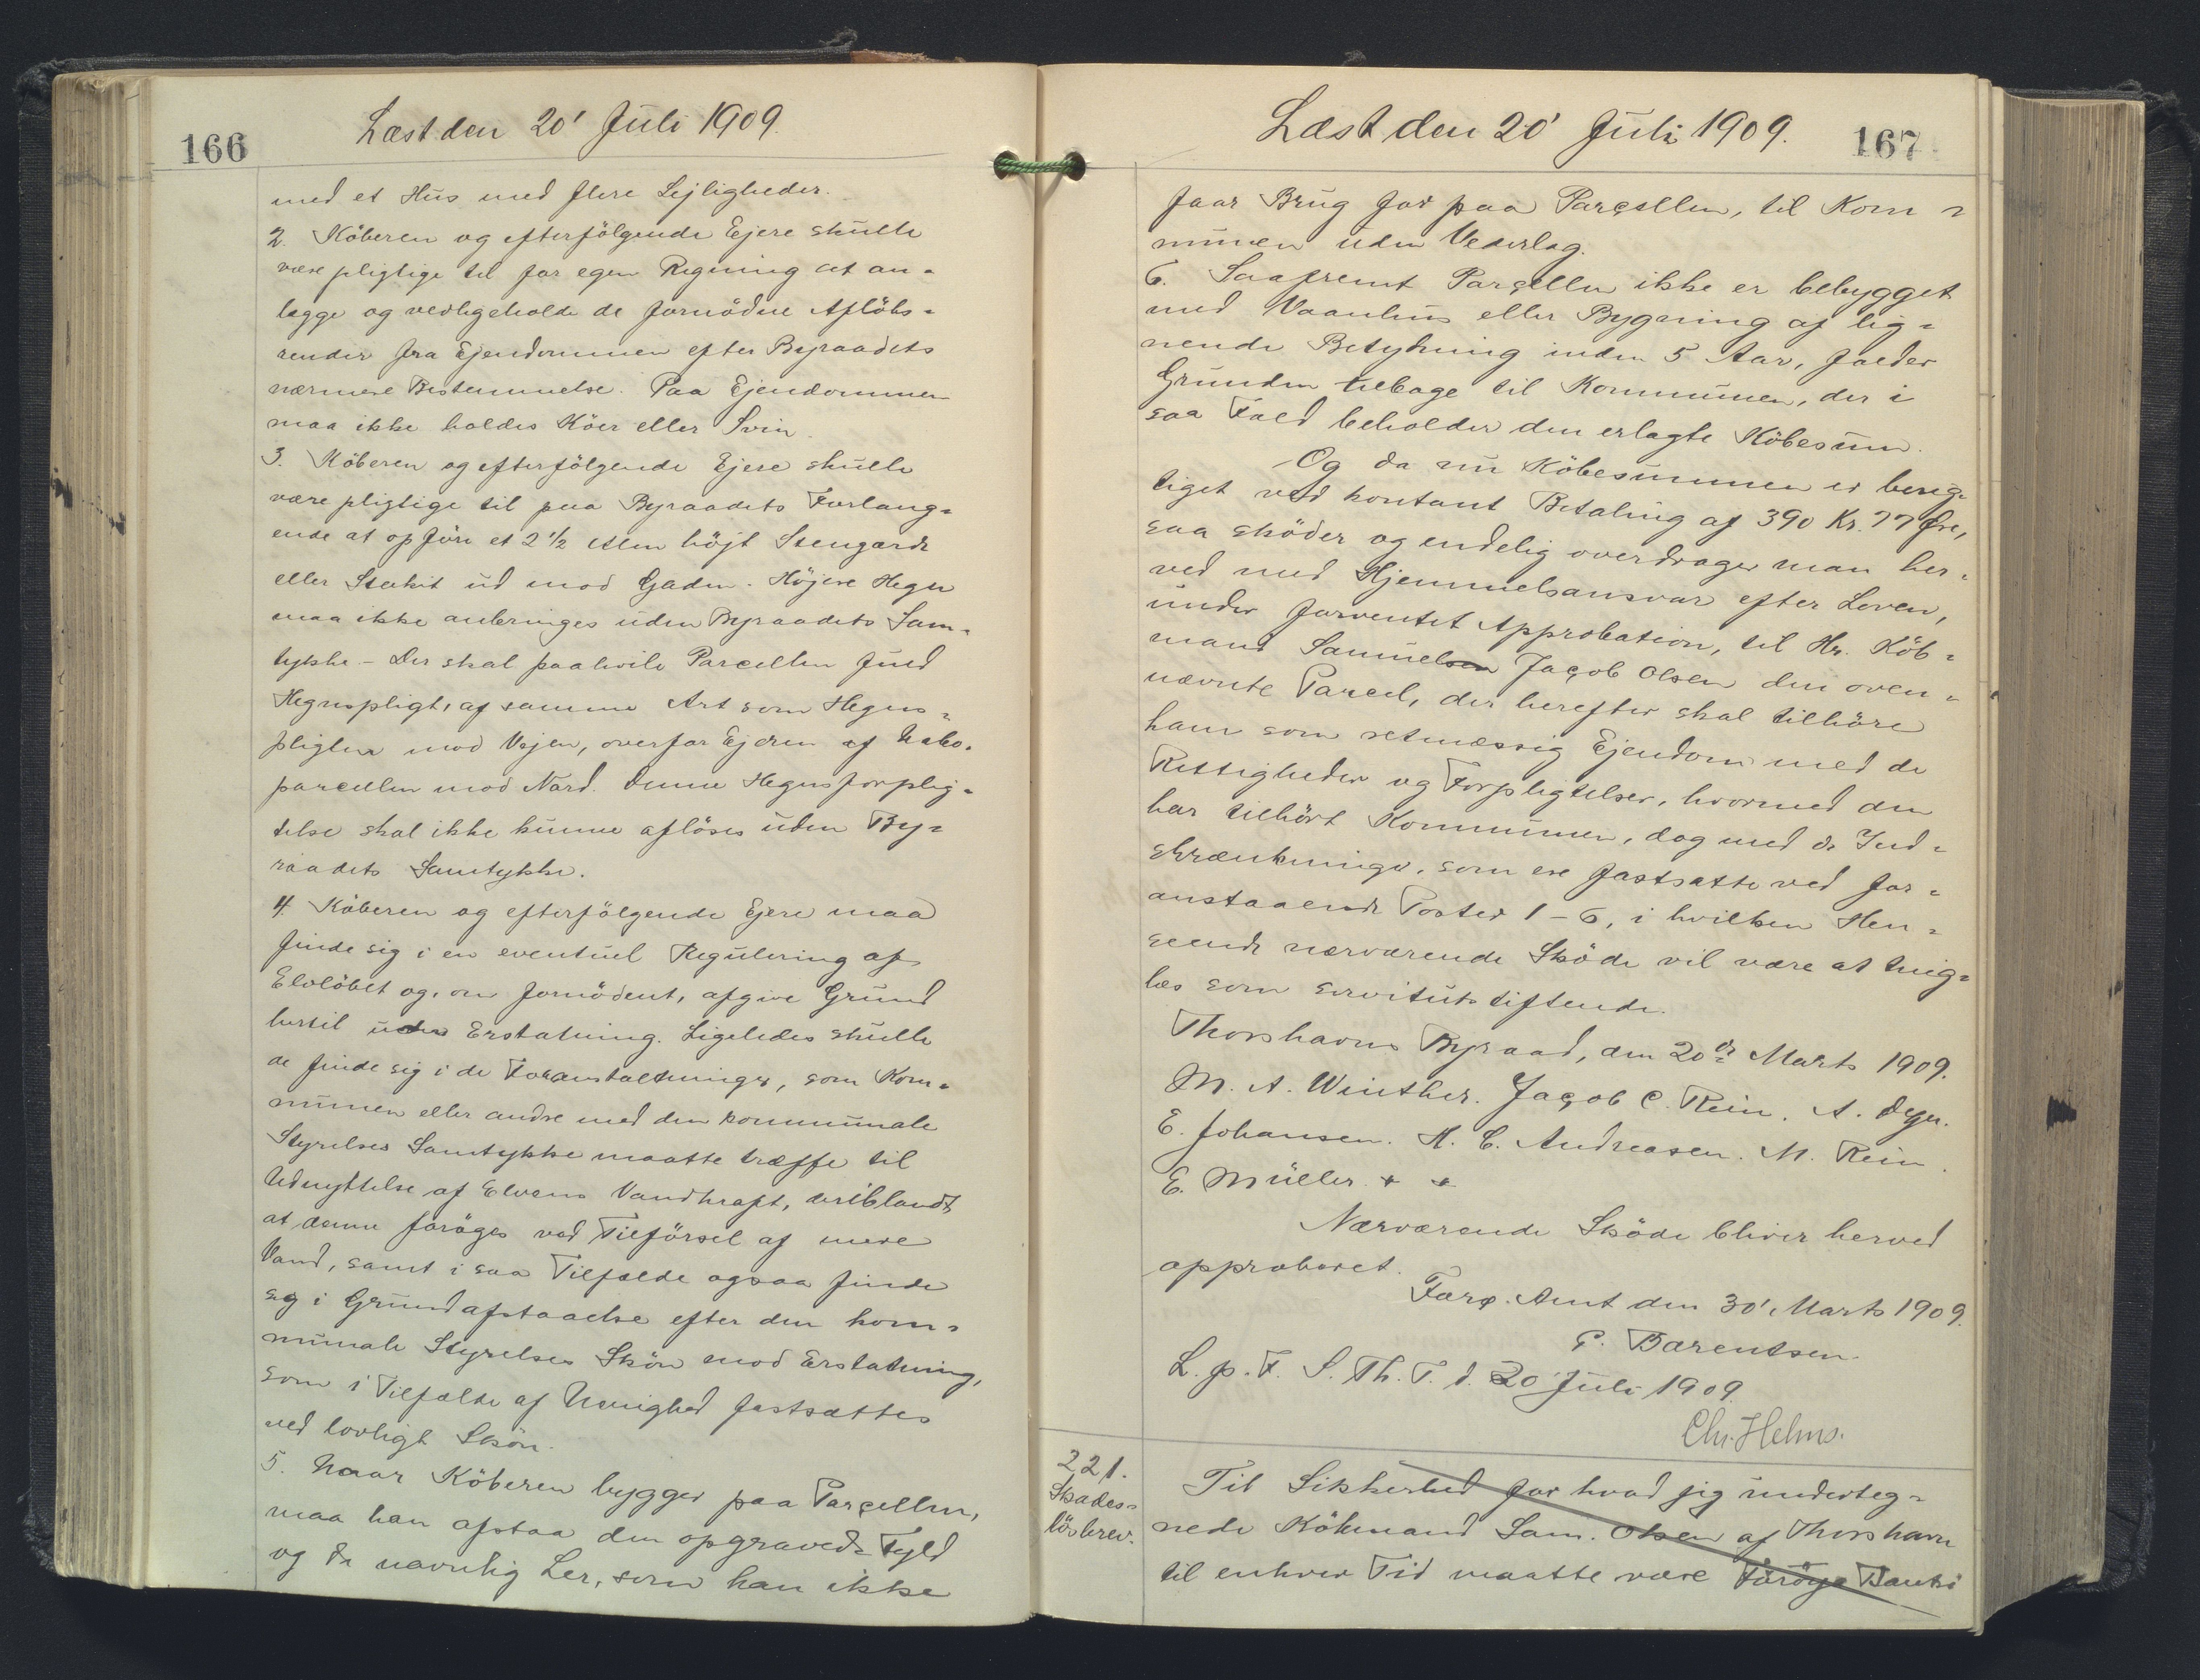 166
Læst den 20' Juli 1909.
med et Hus med flere Lejligheder.
2. Köberen og efterfölgende Ejere skulle
være pligtige til for egen Regning at an-
lægge og vedligeholde de fornödne Aflöbs-
render fra Ejendommen efter Byraadets
nærmere Bestemmelse. Paa Ejendommen
maa ikke holdes Köer eller Svin.
3. Köberen og efterfölgende Ejere skulle
være pligtige til paa Byraadets Forlang-
ende at opföre et 2 1/2 Alen höjt Stengærde
eller Stakit ud mod Gaden. Höjere Hegn
maa ikke anbringes uden Byraadets Sam-
tykke. - Der skal paahvile Parcellen fuld
Hegnspligt, af samme Art som Hegns-
pligten mod Vejen, overfor Ejeren af Nabo-
parcellen mod Nord. Denne Hegnsforplig-
telse skal ikke kunne aflöses uden By-
raadets Samtykke.
4. Köberen og efterfölgende Ejere maa
finde sig i en eventuel Regulering af
Elvlöbet og, om fornödent, afgive Grund
hertil uden Erstatning. Ligeledes skulle
de finde sig i de Foranstaltninger, som Kom-
munen eller andre med den kommunale
Styrelses Samtykke maatte træffe til
Udnyttelse af Elvens Vandkraft, deriblandt
at denne foröges ved Tilförsel af mere
Vand, samt i saa Tilfælde ogsaa finde
sig i Grundafstaaelse efter den kom-
munale Styrelses Skön mod Erstatning,
som i Tilfælde af Uenighed fastsættes
ved lovligt Skön.
5. Naar Köberen bygger paa Parcellen,
maa han afstaa den opgravede Fyld
og da navnlig Ler, som han ikke
Læst den 20' Juli 1909.
167
faar Brug for paa Parcellen, til Kom-
munen uden Vederlag.
6. Saafremt Parcellen ikke er bebygget
med Vaanhus eller Bygning af lig-
nende Betydning inden 5 Aar, falder
Grunden tilbage til Kommunen, der i
saa Fald beholder den erlagte Köbesum.
Og da nu Köbesummen er berig-
tiget ved kontant Betaling af 390 Kr. 77 Öre,
saa sköder og endelig overdrager man her-
ved med Hjemmelsansvar efter Loven,
under forventet Approbation, til Hr. Köb-
mand Samuelsen Jacob Olsen den oven-
nævnte Parcel, der herefter skal tilhöre
ham som retmæssig Ejendom med de
Rettigheder og Forpligtelser, hvormed den
har tilhört Kommunen, dog med de Ind-
skrænkninger, som ere fastsatte ved for-
anstaaende Poster 1-6, i hvilken Hen-
seende nærværende Sköde vil være at ting-
læs som servitutstiftende.
Thorshavns Byraad, den 20de Marts 1909.
M. A. Winther. Jacob C. Rein. A. Degn.
E. Johansen. H. C. Andreasen. M. Rein.
E. Müller.
Nærværende Sköde bliver herved
approberet.
Færö Amt den 30' Marts 1909.
C. Bærentsen.
L. p. F. S. Th. T. d. 20 Juli 1909.
Chr. Helms.
221.
Skades-
lösbrev.
Til Sikkerhed for hvad jeg underteg-
nede Köbmand Sam. Olsen af Thorshavn
til enhver Tid maatte være Föröya Banki